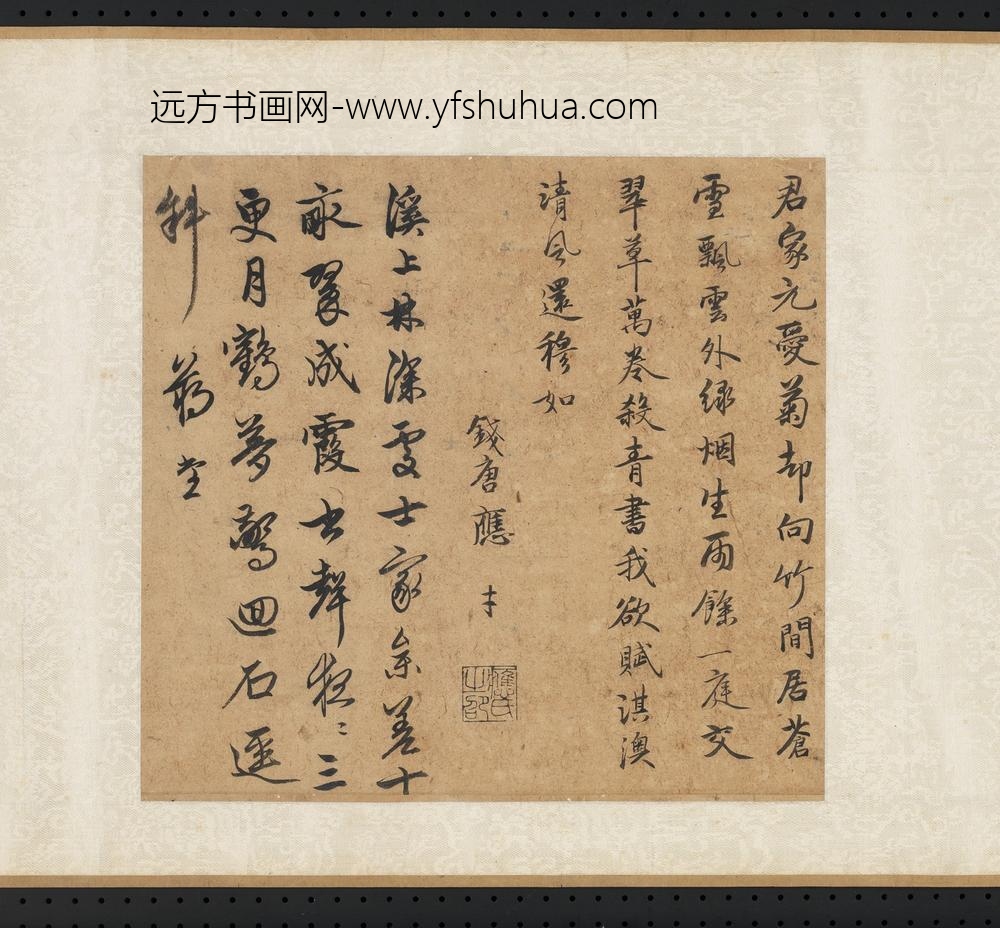 远方书画网-www.yfshuhua.com
君家元愛菊却向竹間居蒼
雪飄雲外緑烟生雨餘一庭交
翠草萬卷殺青書我欲賦淇澳
清風還穆如
錢唐應才
溪上林深處士家参差十
畝翠成霞書聲夜〻三
更月鶴夢驚回石逕
斜 蔣堂
應氏